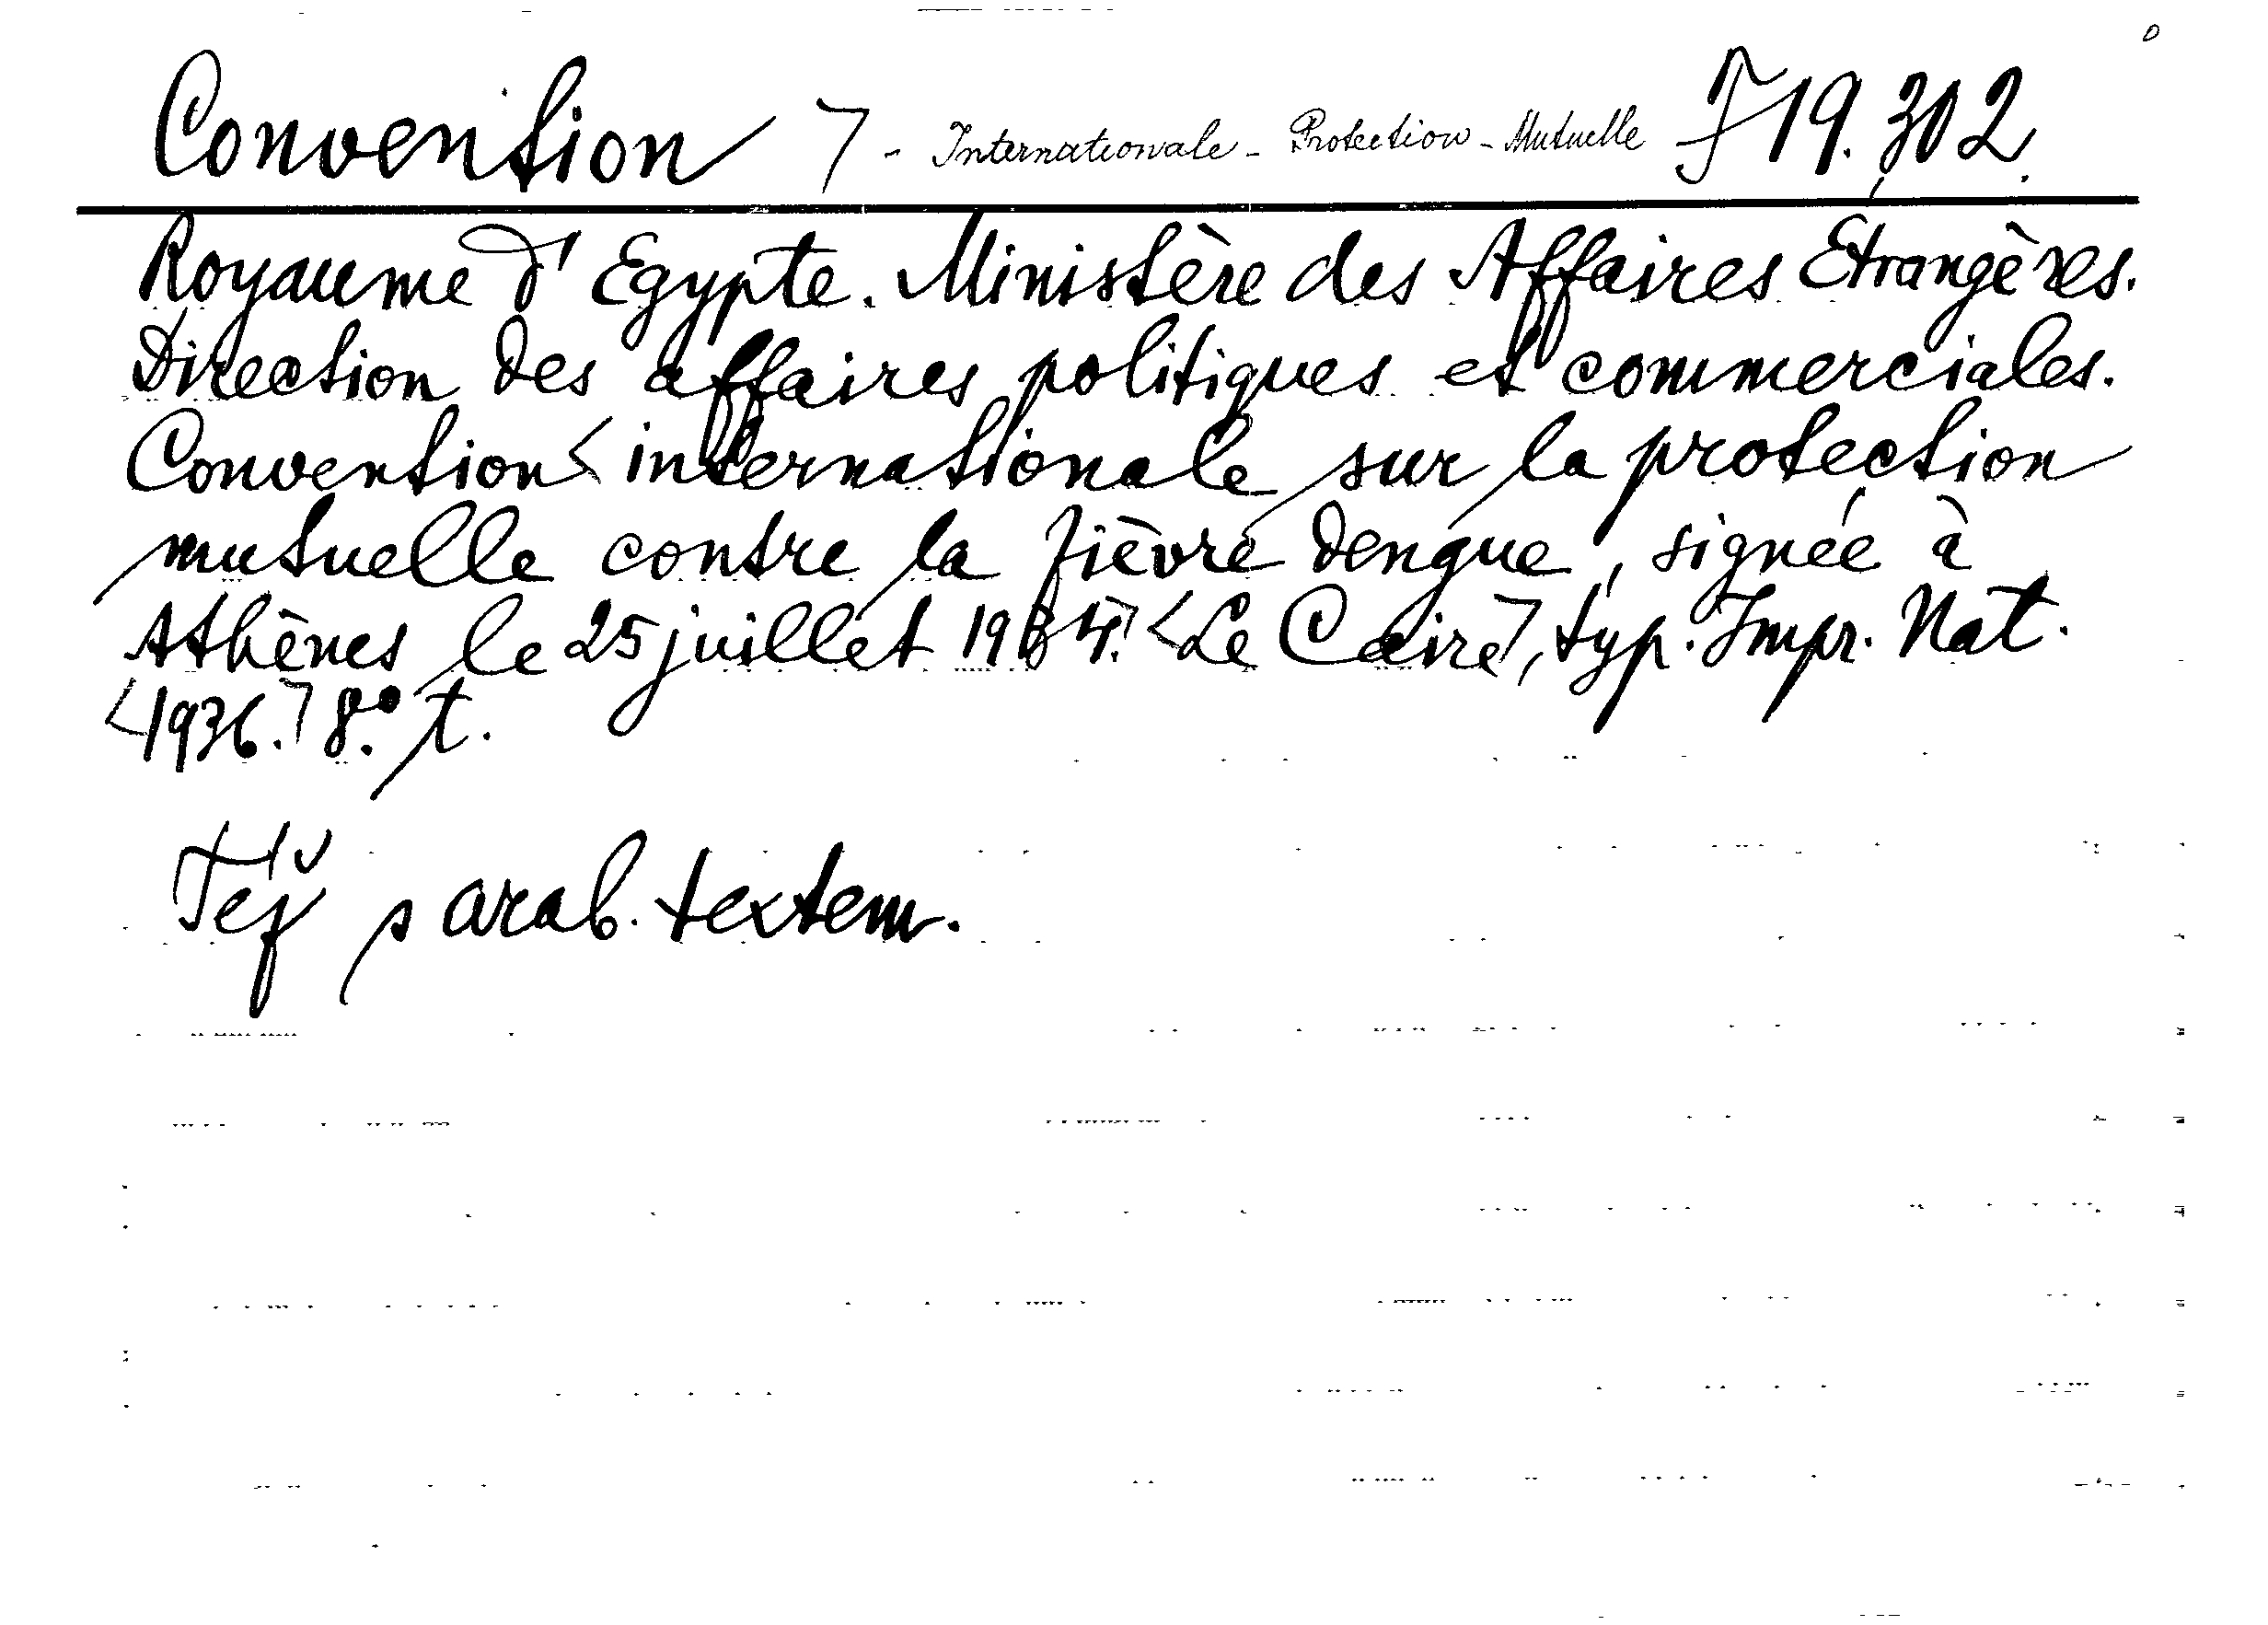 Convention 7 - Internationale - Protection - Mutuelle F 19.302.
Royaume d'Egypte. Ministère des Affaires Etrangères.
Direction des affaires politiques et commerciales.
Convention < internationale sur la protection
mutuelle contre la fièvre dengue, signée à
Athènes le 25 juillet 1934.7 <Le Caire7, typ. Impr. Nat.
<1936.7 8.° t.
Též s arab. textem.